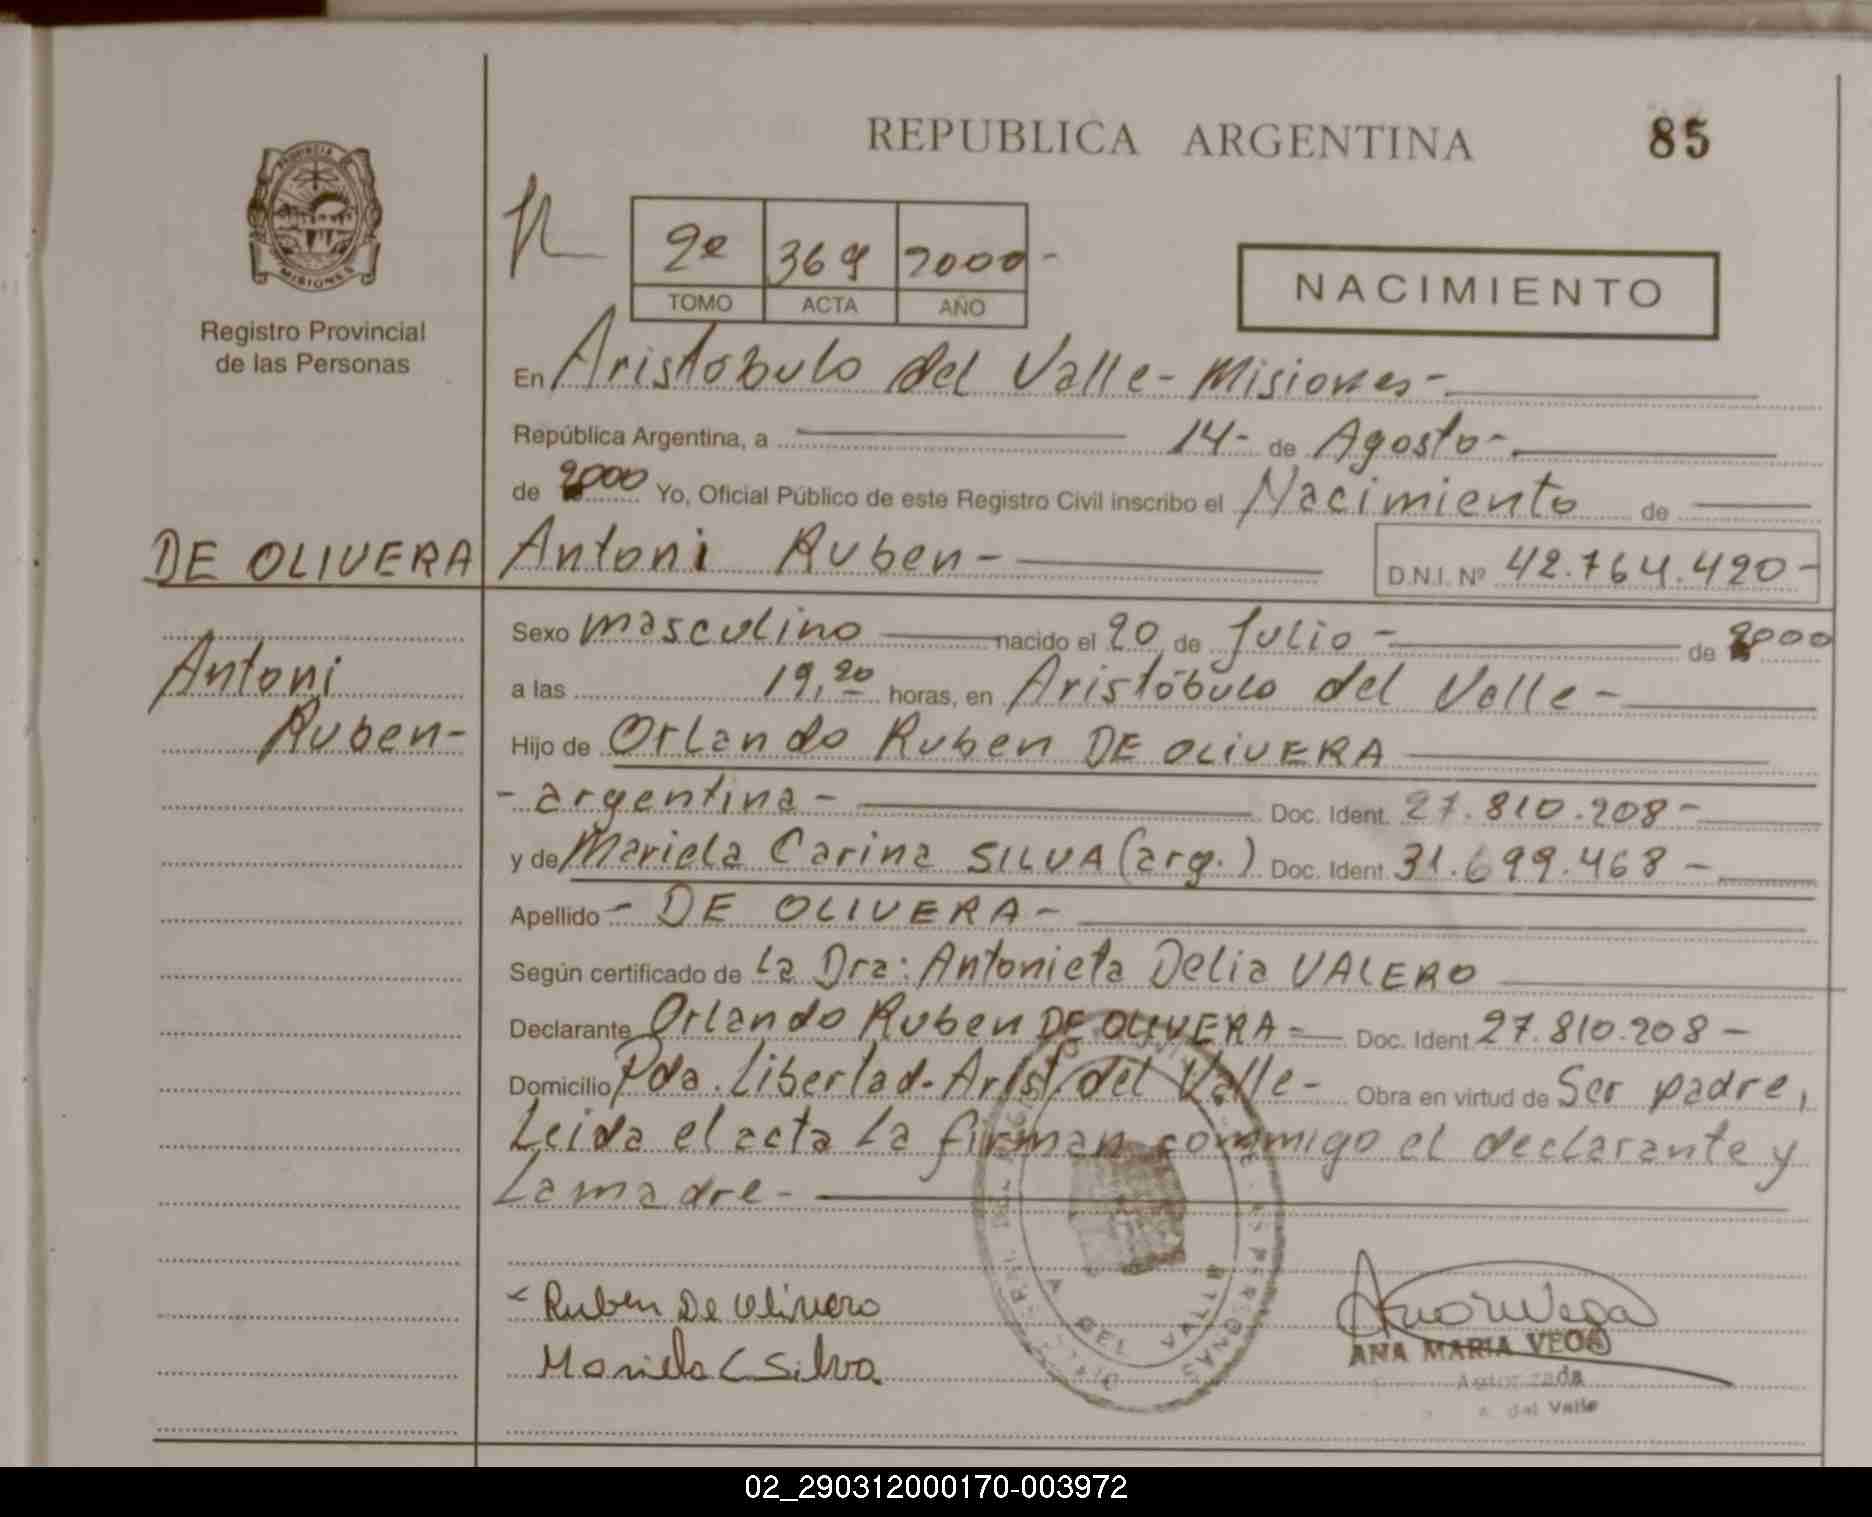 REPUBLICA ARGENTINA 85
PROVINCIA DE
MISIONES
Registro Provincial
de las Personas
2º 369 2000-
TOMO ACTA AÑO
NACIMIENTO
En Aristóbulo del Valle - Misiones-
República Argentina, a 14- de Agosto-
de 2000 Yo, Oficial Público de este Registro Civil inscribo el Nacimiento de
DE OLIVERA Antoni Ruben-
D.N.I. Nº 42.764.420-
Antoni
Ruben-
Sexo masculino nacido el 20 de Julio- de 2000
a las 19,20 horas, en Aristóbulo del Valle-
Hijo de Orlando Ruben DE OLIVERA
- argentina - Doc. Ident. 27.810.208-
y de Mariela Carina SILVA (arg.) Doc. Ident. 31.699.468-
Apellido - DE OLIVERA-
Según certificado de La Dra: Antonieta Delia VALERO
Declarante Orlando Ruben DE OLIVERA= Doc. Ident 27.810.208-
Domicilio Pda. Libertad- Arist. del Valle- Obra en virtud de Ser padre,
Leida el acta la firman conmigo el declarante y
La madre-
Ruben De Olivera
Mariela C Silva
ANA MARIA VEGA
Autorizada
A. del Valle
02_290312000170-003972